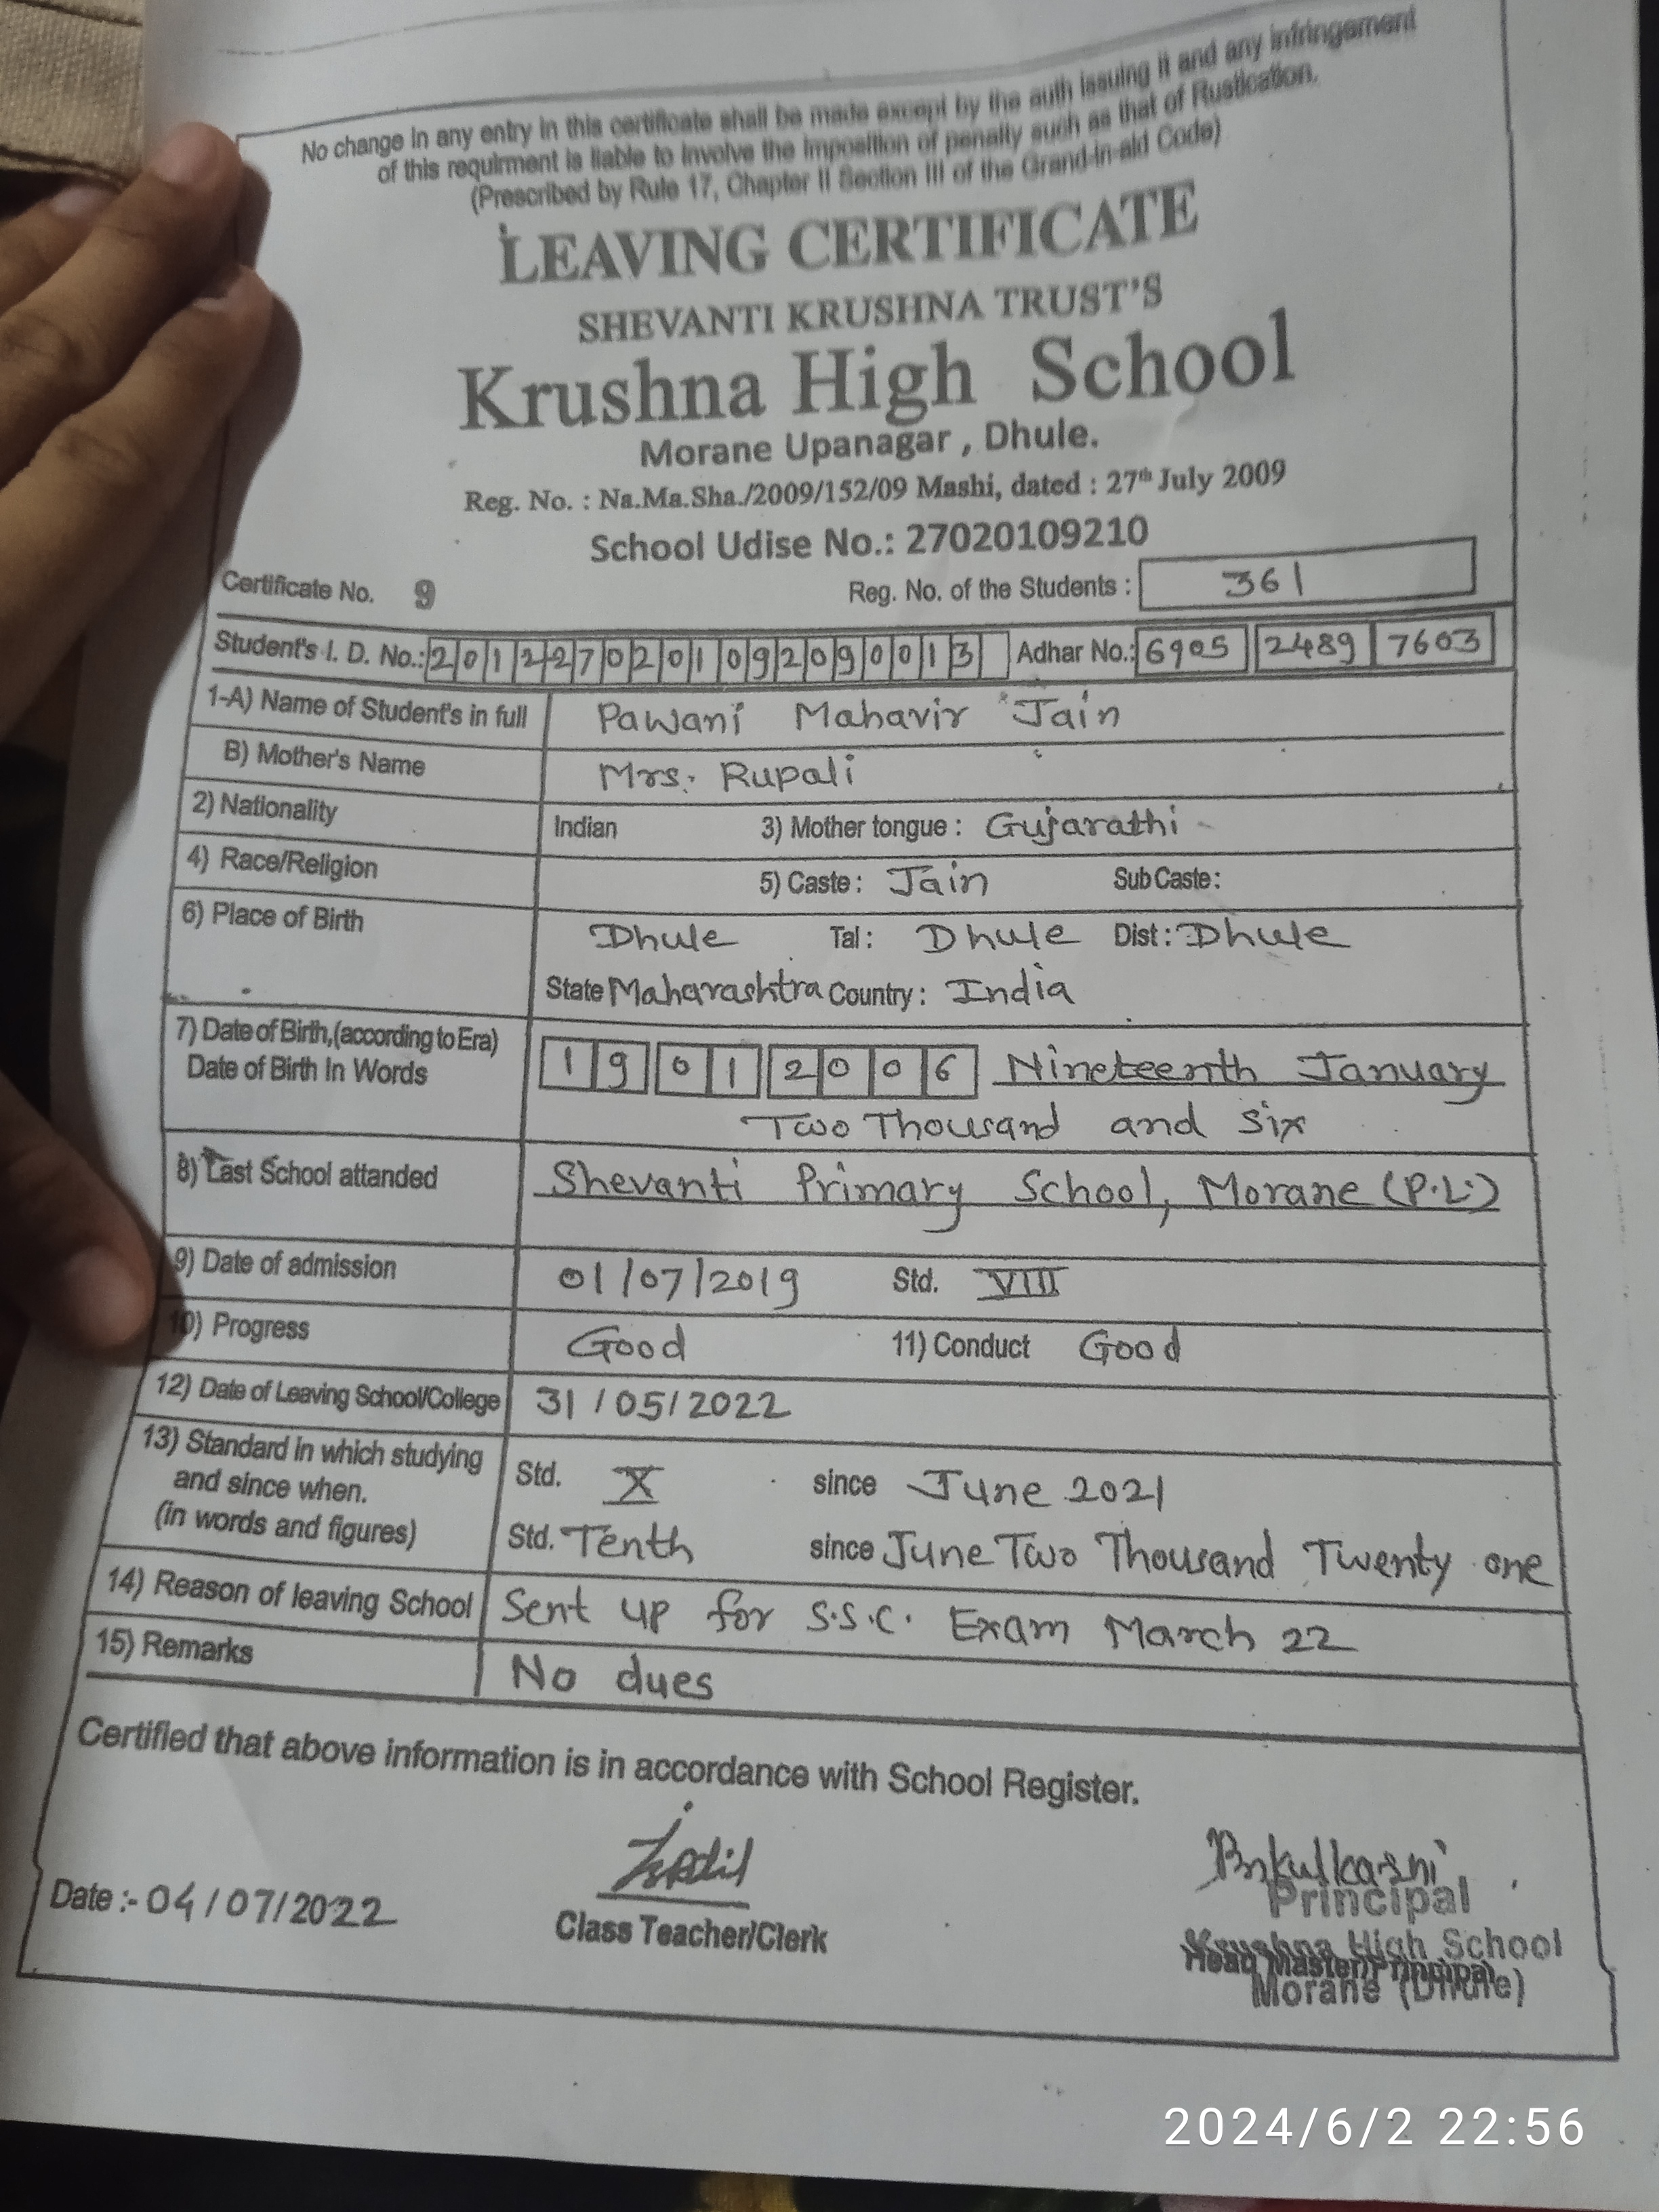 No change in any entry in this certificate shall be made except by the auth issuing it and any infringement
of this requirment is liable to involve the imposition of penalty such as that of Rustication.
(Prescribed by Rule 17, Chapter II Section III of the Grand-in-aid Code)
LEAVING CERTIFICATE
SHEVANTI KRUSHNA TRUST'S
Krushna High School
Morane Upanagar , Dhule.
Reg. No. : Na.Ma.Sha./2009/152/09 Mashi, dated : 27th July 2009
School Udise No.: 27020109210
Certificate No. 9 Reg. No. of the Students : 361
Student's I. D. No.: 2012270201092090013 Adhar No.: 6905 2489 7603
1-A) Name of Student's in full Pawani Mahavir Jain
B) Mother's Name Mrs. Rupali
2) Nationality Indian 3) Mother tongue : Gujarathi
4) Race/Religion 5) Caste : Jain Sub Caste :
6) Place of Birth Dhule Tal : Dhule Dist : Dhule
State Maharashtra Country : India
7) Date of Birth,(according to Era) 19 01 2006 Nineteenth January
Date of Birth In Words Two Thousand and six
8) Last School attanded Shevanti Primary School, Morane (P.L.)
9) Date of admission 01/07/2019 Std. VIII
10) Progress Good 11) Conduct Good
12) Date of Leaving School/College 31/05/2022
13) Standard in which studying Std. X since June 2021
and since when.
(in words and figures) Std. Tenth since June Two Thousand Twenty one
14) Reason of leaving School Sent up for S.S.C. Exam March 22
15) Remarks No dues
Certified that above information is in accordance with School Register.
Date :- 04/07/2022
Class Teacher/Clerk
Principal
Krushna High School
Head Master/Principal
Morane (Dhule)
2024/6/2 22:56